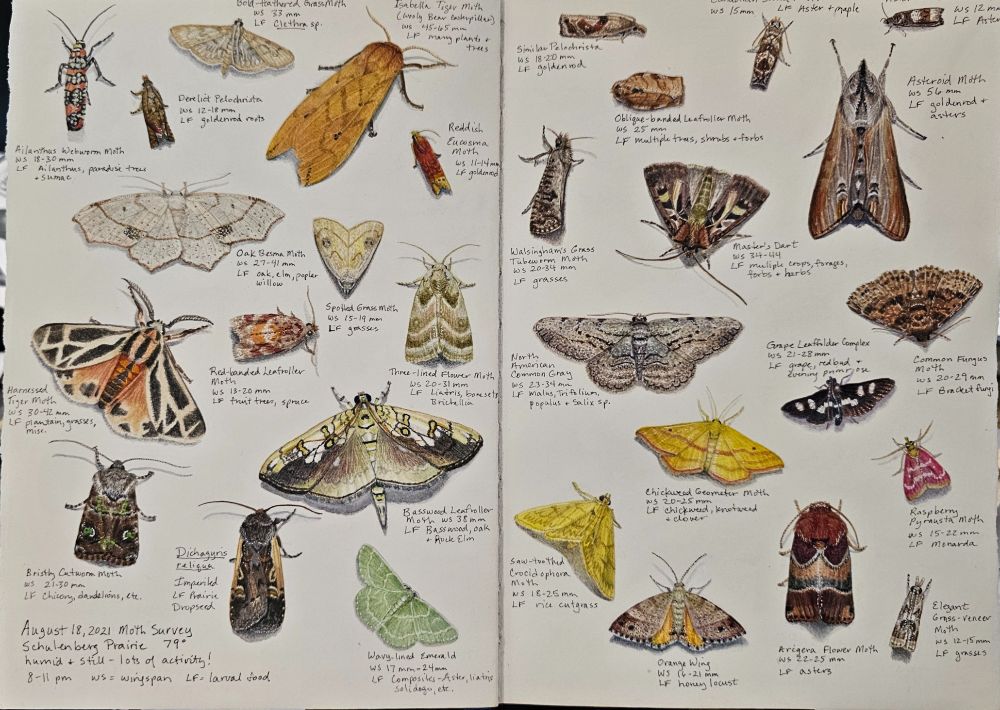 Bold-feathered Grass Moth
WS 33 mm
LF Clethra sp.
Isabella Tiger Moth
(Wooly Bear Caterpillar)
WS 45-65 mm
LF many plants +
trees
Derelict Pelochrista
WS 12-18 mm
LF goldenrod roots
Reddish
Eucosma
Moth
WS 11-14 mm
LF goldenrod
Ailanthus Webworm Moth
WS 18-30 mm
LF Ailanthus, paradise trees
+ sumac
Oak Besma Moth
WS 27-41 mm
LF oak, elm, poplar
willow
Spotted Grass Moth
WS 15-19 mm
LF grasses
Harnessed
Tiger Moth
WS 30-42 mm
LF plantain, grasses,
misc.
Red-banded Leafroller
Moth
WS 18-20 mm
LF fruit trees, spruce
Three-lined Flower Moth
WS 20-31 mm
LF Liatris, boneset,
Brickellia
Basswood Leafroller
Moth WS 38 mm
LF Basswood, oak
+ Rock Elm
Bristly Cutworm Moth
WS 21-30 mm
LF Chicory, dandelions, etc.
Dichagyris
reliqua
Imperiled
LF Prairie
Dropseed
Wavy-lined Emerald
WS 17 mm-24mm
LF Composites-Aster, liatris
solidago, etc.
August 18, 2021 Moth Survey
Schulenberg Prairie 79°
humid + still - lots of activity!
8-11 pm WS = wingspan LF= larval food
Similar Pelochrista
WS 18-20 mm
LF goldenrod
WS 15mm
LF Aster + maple
WS 12 m
LF Aste
Oblique-banded Leafroller Moth
WS 25 mm
LF multiple trees, shrubs + forbs
Asteroid Moth
WS 56 mm
LF goldenrod +
asters
Walsingham's Grass
Tubeworm Moth
WS 20-34 mm
LF grasses
Master's Dart
WS 34-44
LF muliple crops, forages,
forbs + herbs
North
American
Common Gray
WS 23-34 mm
LF malus, Trifolium,
populus + Salix sp.
Grape Leaffolder Complex
WS 21-28 mm
LF grape, redbud +
evening primrose
Common Fungus
Moth
WS 20-29 mm
LF Bracket fungi
Chickweed Geometer Moth
WS 20-25 mm
LF chickweed, knotweed
+ clover
Raspberry
Pyrausta Moth
WS 15-22 mm
LF Monarda
Saw-toothed
Crocidophora
Moth
WS 18-25 mm
LF rice cutgrass
Orange Wing
WS 16-21 mm
LF honey locust
Arcigera Flower Moth
WS 22-25 mm
LF asters
Elegant
Grass-veneer
Moth
WS 12-15 mm
LF grasses